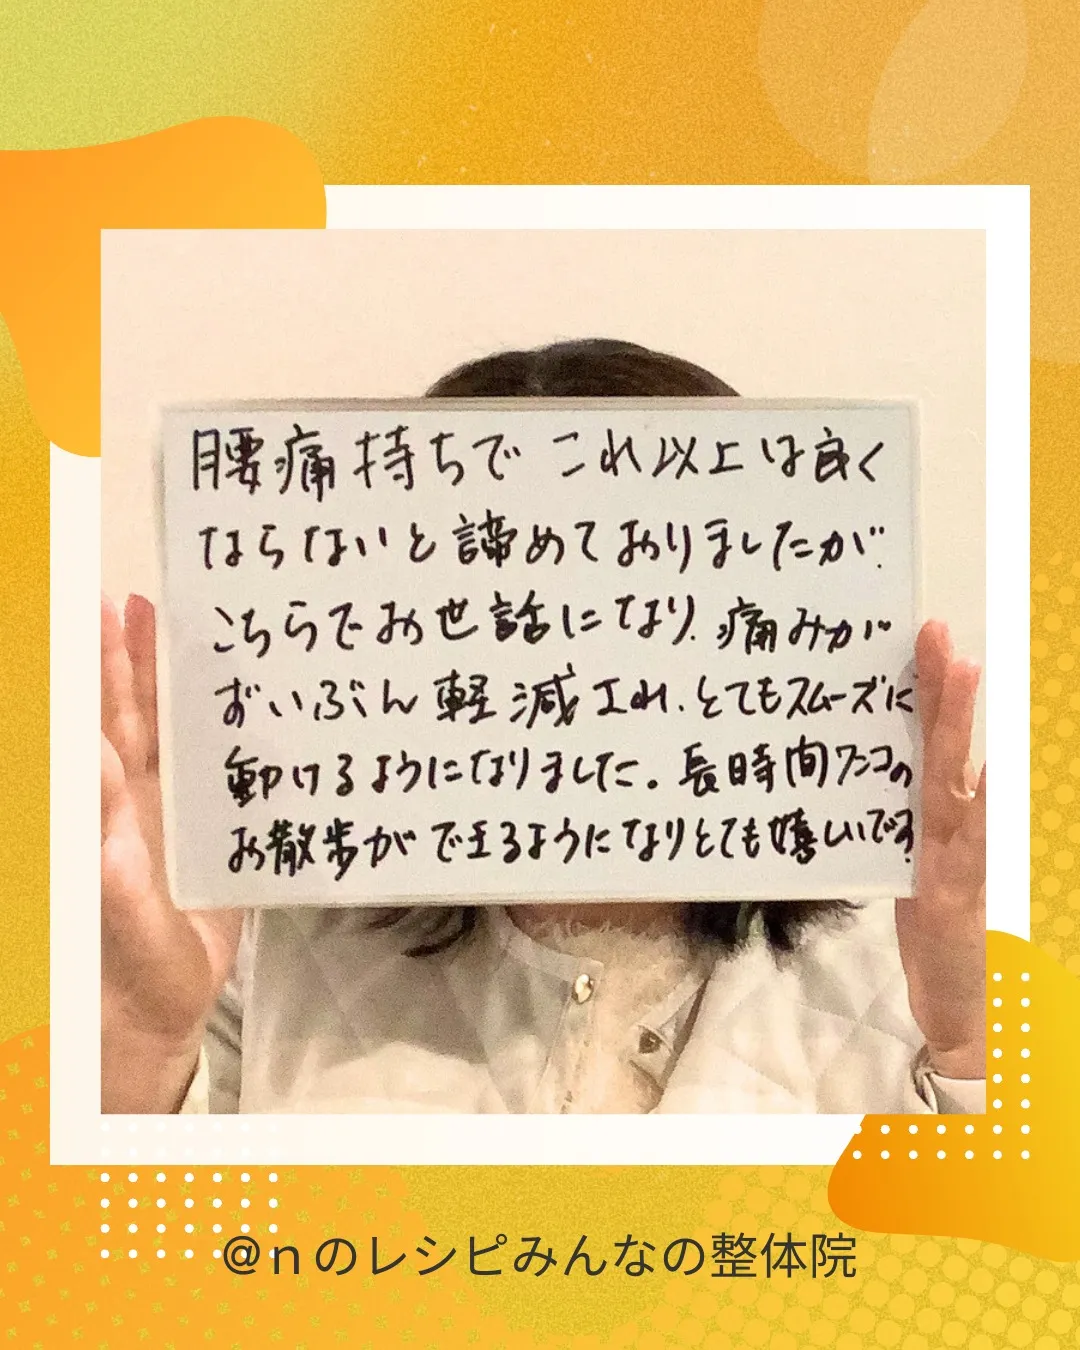 腰痛持ちでこれ以上は良く
ならないと諦めておりましたが
こちらでお世話になり、痛みが
ずいぶん軽減され、とてもスムーズに
動けるようになりました。長時間ワンコの
お散歩ができるようになりとても嬉しいです
@nのレシピみんなの整体院